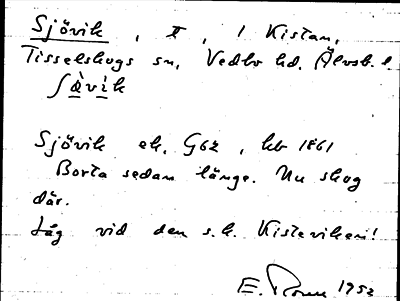 Sjövik, t, i Kistan,
Tisselskogs sn, Vedbo hd, Älvsb. l.
ʃǿvik
Sjövik ek. G62, hb 1861
Borta sedan länge. Nu skog
där.
Låg vid den s.k. Kisteviken!
E. 1952